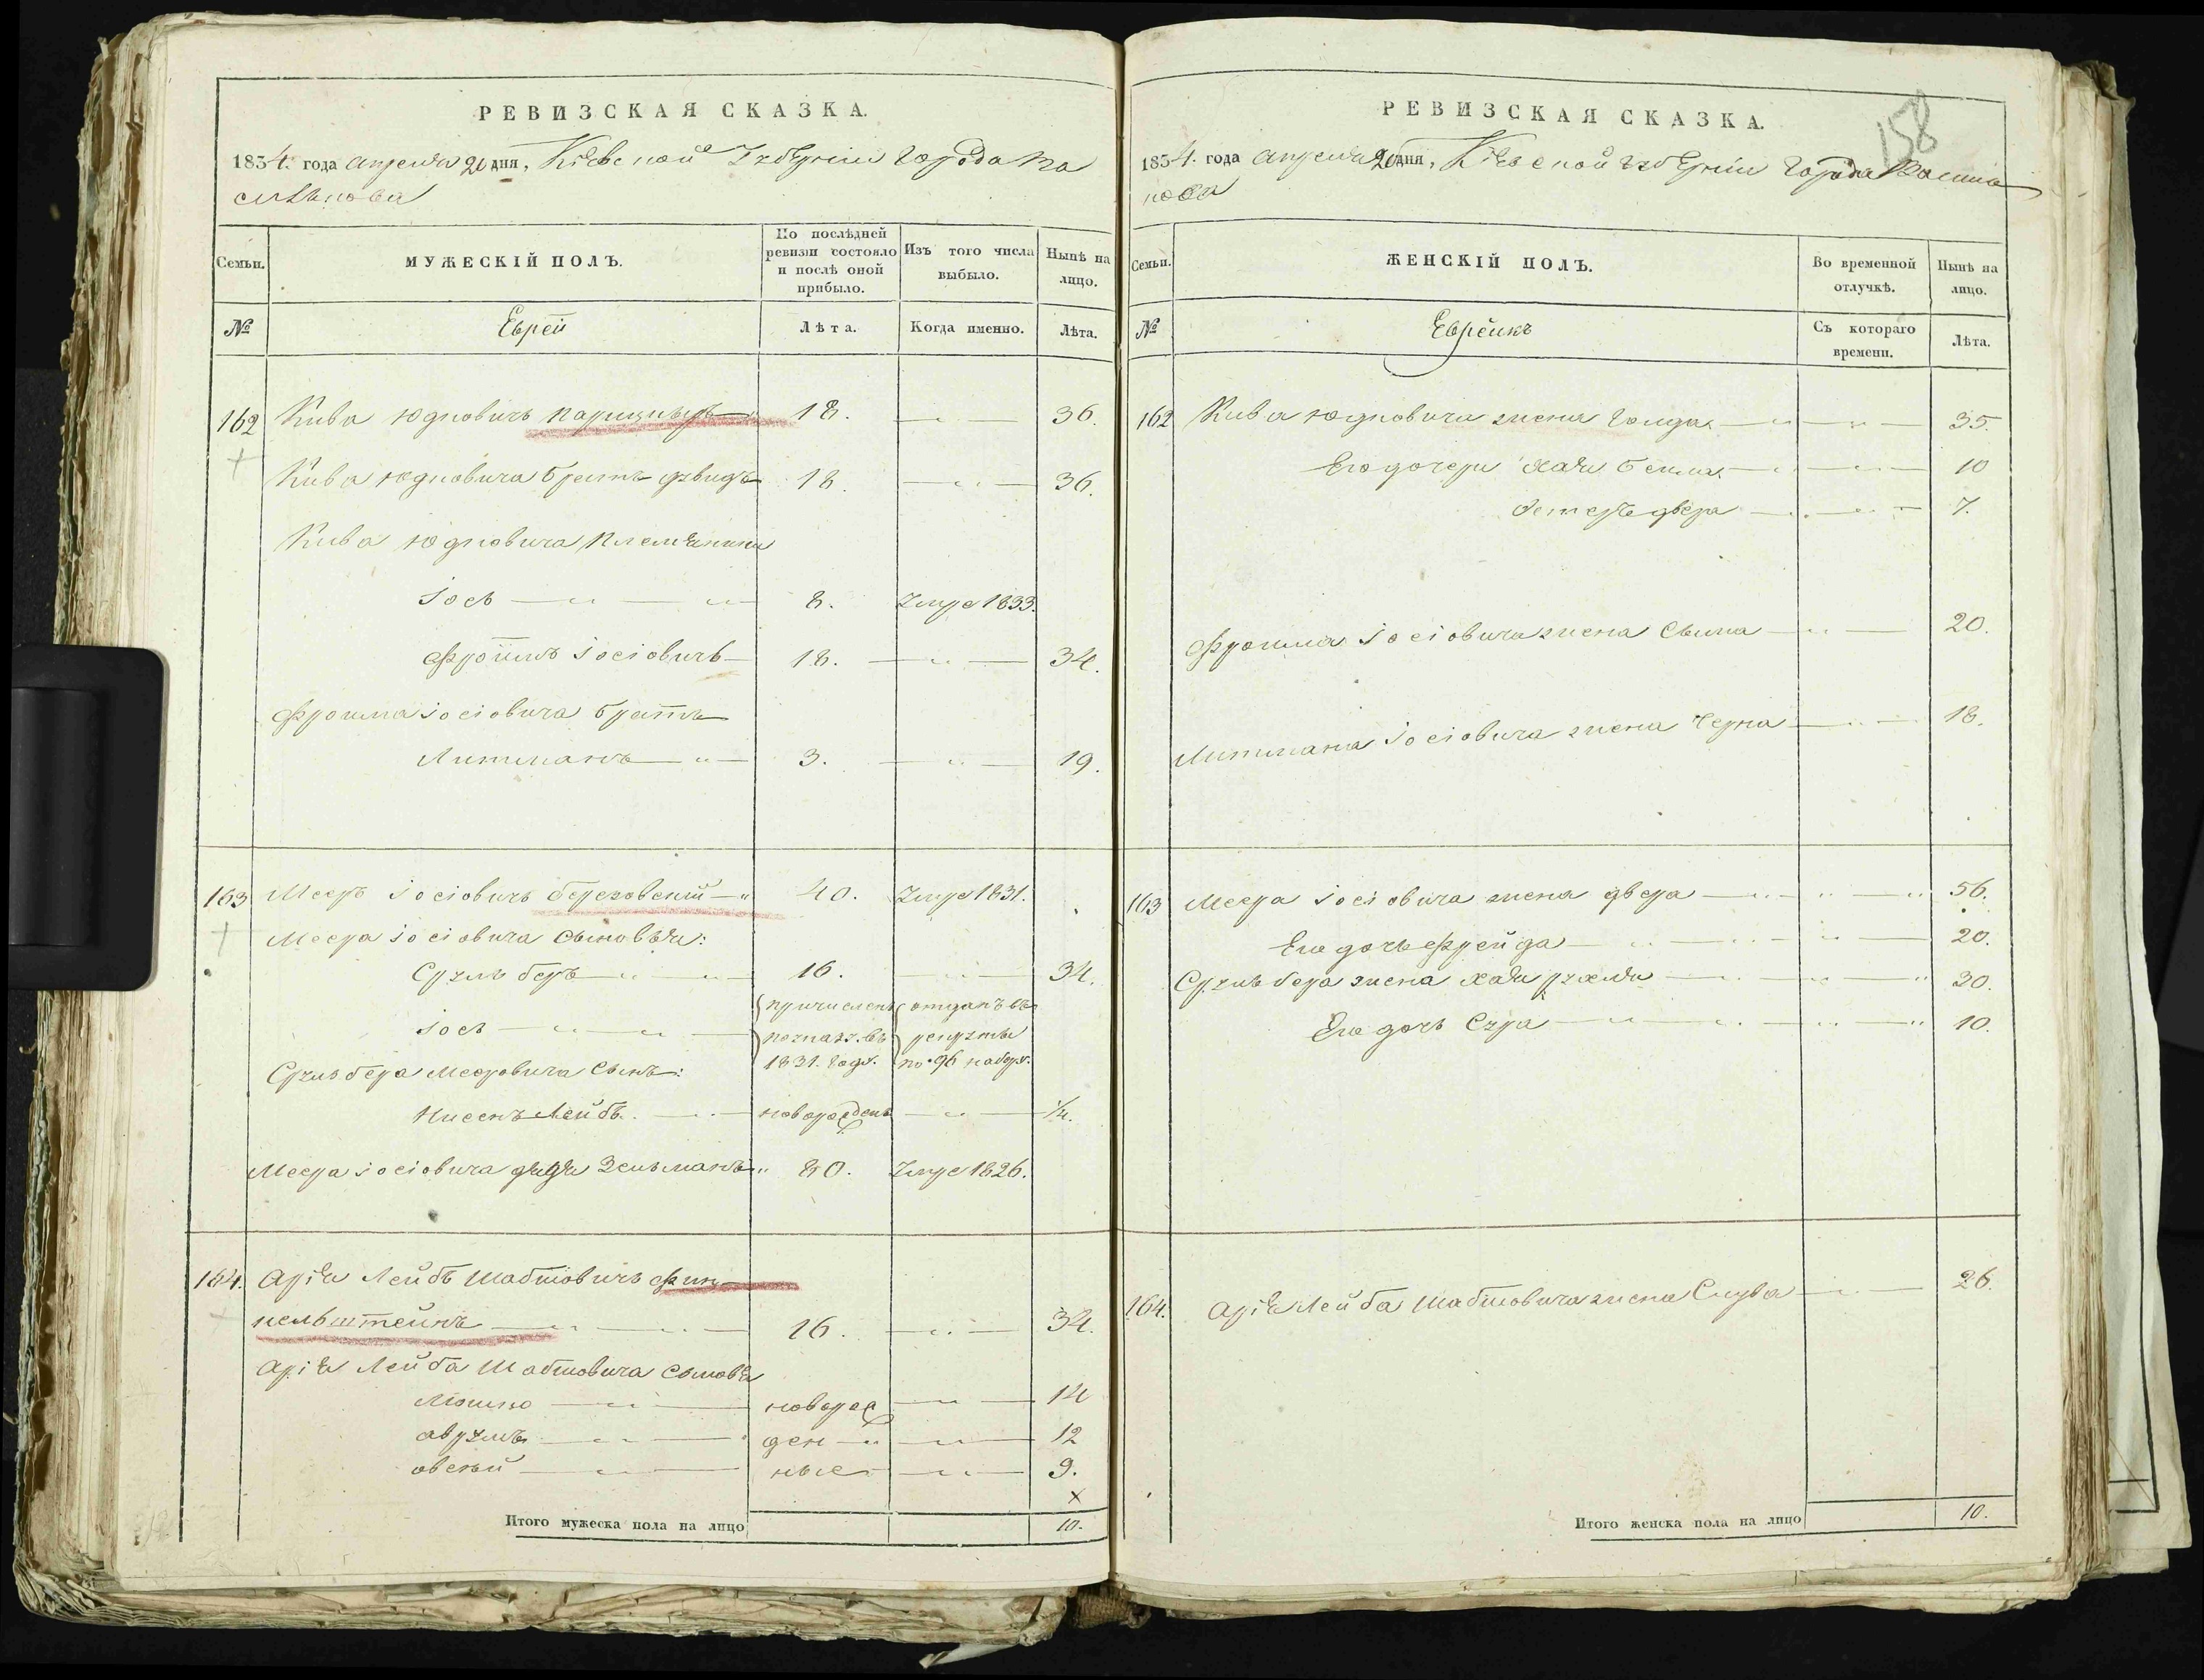 РЕВИЗСКАЯ СКАЗКА.
1834. года апреля 20 дня, Кіевской Губерніи города Ва
силькова
Семьи.
МУЖЕСКІЙ ПОЛЪ.
По послѣдней ревизіи состояло и послѣ оной прибыло.
Изъ того числа выбыло.
Нынѣ на лицо.
№
Еврей
Лѣта.
Когда именно.
Лѣта.
162 Кива Юдковичъ 18. 36.
Кива Юдковича братъ 18. 36.
Кива Юдковича племѣнники
Іось 8. Умре 1833.
Фроимъ Іосіовичъ 18. 34.
Фроима Іосіовича братъ
Литманъ 3. 19.
163 Мееръ Іосіовичъ Березовскій 40. Умре 1831.
Меера Іосіовича сыновья:
Сруль беръ 16. 34.
Іось причисленъ по указу въ 1831. году. отданъ въ рекруты по 96 набору.
Сруль бера Мееровича сынъ:
Нисенъ Лейбъ новорожденъ ¼.
Меера Іосіовича дядя Зельманъ 80. Умре 1826.
164. Аріѧ Лейбъ Шабтовичъ Фин
кельштейнъ 16. 34.
Аріѧ Лейба Шабтовича сыновья
Мошко новорож 14
аврумъ ден 12
овсѣй ные 9.
х
Итого мужеска пола на лицо 10.
158
РЕВИЗСКАЯ СКАЗКА.
1834. года апреля 20 дня, Кіевской губерніи города Василь
кова
Семьи.
ЖЕНСКІЙ ПОЛЪ.
Во временной отлучкѣ.
Нынѣ на лицо.
№
Еврейкъ
Съ котораго времени.
Лѣта.
162 Кива Юдковича жена Голда 35.
Его дочери Хая Бейла 10
Естеръ двера 7.
Фроима Іосіовича жена Сыма 20.
Литмана Іосіовича жена Черна 18.
163 Меера Іосіовича жена двера 56.
Его дочь Фрейда 20.
Сруль бера жена Хая рухля 30.
Его дочь Сура 10.
164. Аріѧ Лейба Шабтовича жена 26.
Итого женска пола на лицо 10.